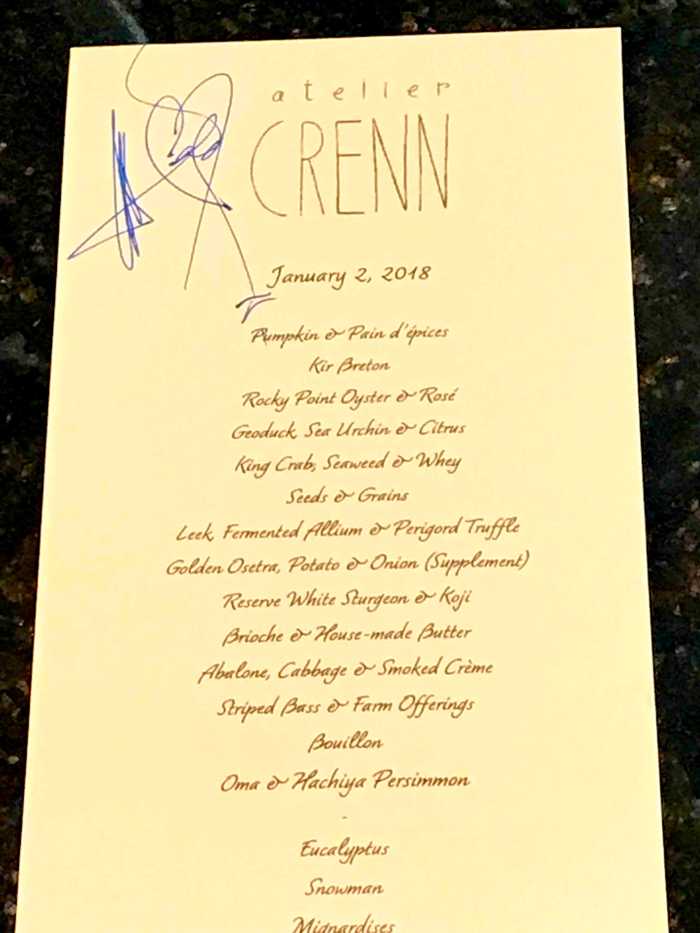 atelier
CRENN
January 2, 2018
Pumpkin & Pain d'épices
Kir Breton
Rocky Point Oyster & Rosé
Geoduck, Sea Urchin & Citrus
King Crab, Seaweed & Whey
Seeds & Grains
Leek, Fermented Allium & Perigord Truffle
Golden Osetra, Potato & Onion (Supplement)
Reserve White Sturgeon & Koji
Brioche & House-made Butter
Abalone, Cabbage & Smoked Crème
Striped Bass & Farm Offerings
Bouillon
Oma & Hachiya Persimmon
-
Eucalyptus
Snowman
Mignardises